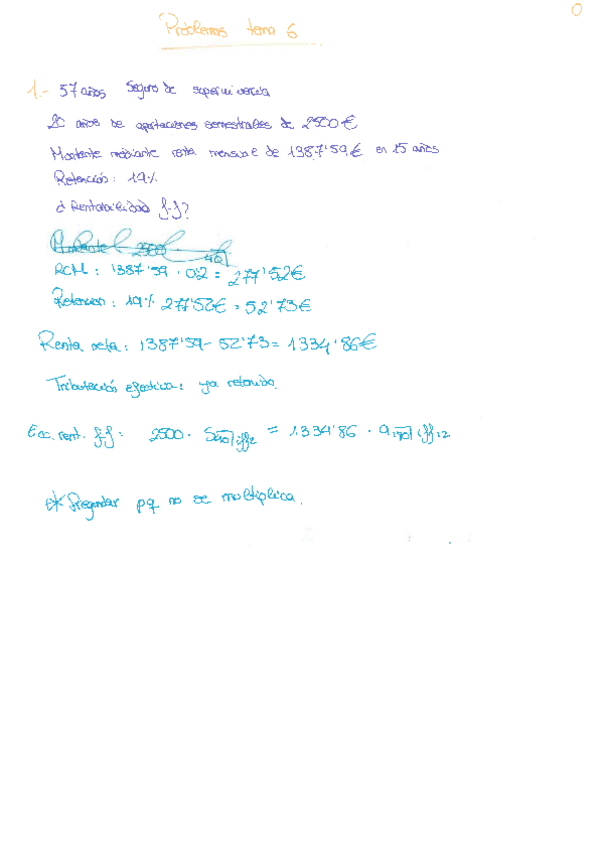 0
Problemas tema 6
1.- 57 años Seguro de supervivencia
20 años de aportaciones semestrales de 2500 €
Montante mediante renta mensual de 1387'59 € en 15 años
Retención: 19%
¿Rentabilidad f-f?
2500
RCM: 1387'59 · 0'2 = 277'52€
Retención: 19% 277'52€ = 52'73€
Renta neta: 1387'59 - 52'73 = 1334'86€
Tributación efectiva: ya retenido.
Ec. rent. ff: 2500 · S20| iff2 = 1334'86 · a15| iff12
* Preguntar pq no se multiplica.